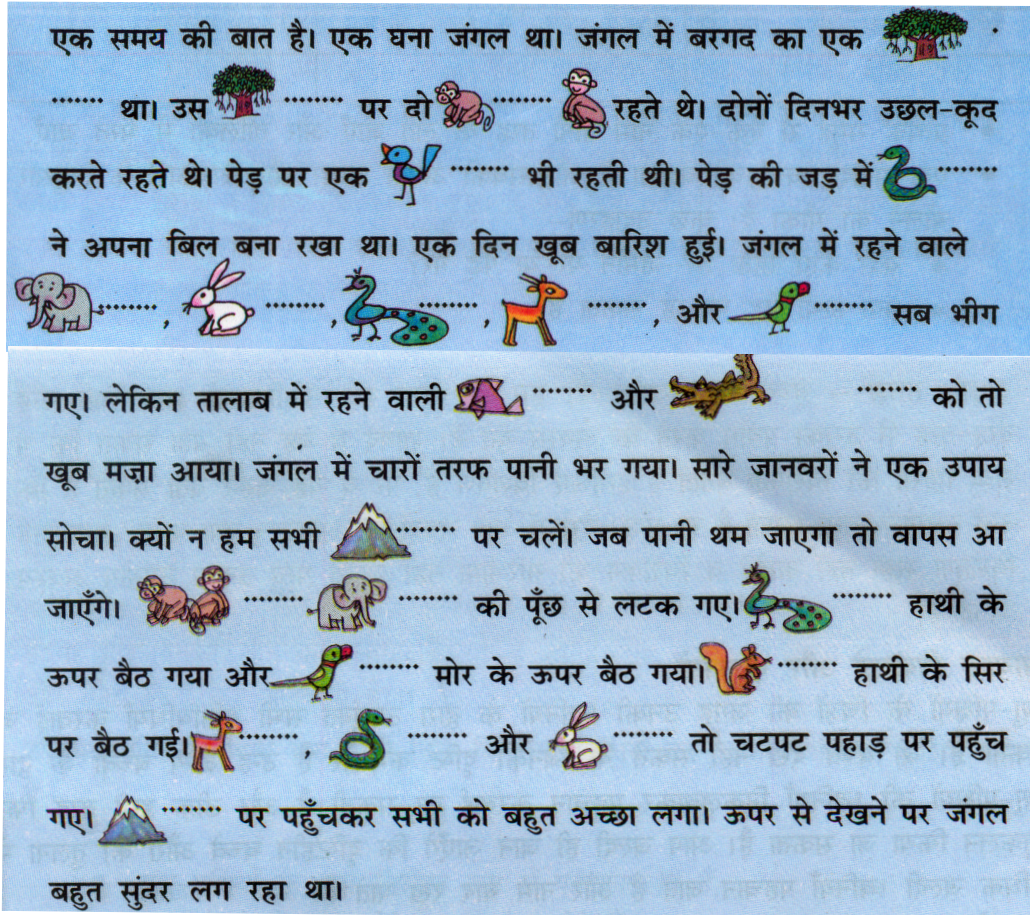 एक समय की बात है। एक घना जंगल था। जंगल में बरगद का एक
........ था। उस ........ पर दो ........ रहते थे। दोनों दिनभर उछल-कूद
करते रहते थे। पेड़ पर एक ........ भी रहती थी। पेड़ की जड़ में ........
ने अपना बिल बना रखा था। एक दिन खूब बारिश हुई। जंगल में रहने वाले
........, ........, ........, ........, और ........ सब भीग
गए। लेकिन तालाब में रहने वाली ........ और ........ को तो
खूब मज़ा आया। जंगल में चारों तरफ पानी भर गया। सारे जानवरों ने एक उपाय
सोचा। क्यों न हम सभी ........ पर चलें। जब पानी थम जाएगा तो वापस आ
जाएँगे। ........ ........ की पूँछ से लटक गए। ........ हाथी के
ऊपर बैठ गया और ........ मोर के ऊपर बैठ गया। ........ हाथी के सिर
पर बैठ गई। ........ ........ और ........ तो चटपट पहाड़ पर पहुँच
गए। ........ पर पहुँचकर सभी को बहुत अच्छा लगा। ऊपर से देखने पर जंगल
बहुत सुंदर लग रहा था।